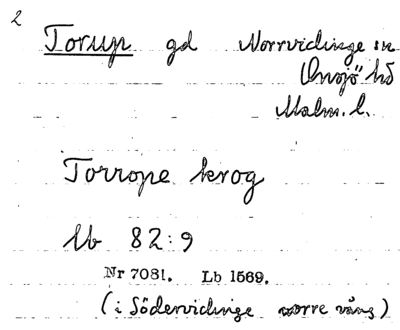 2
Torup gd Norrvidinge sn
Onsjö hd
Malm. l.
Torrope krog
lb 82:9
Nr 7081. Lb 1569.
(i Södervidinge norre vång)